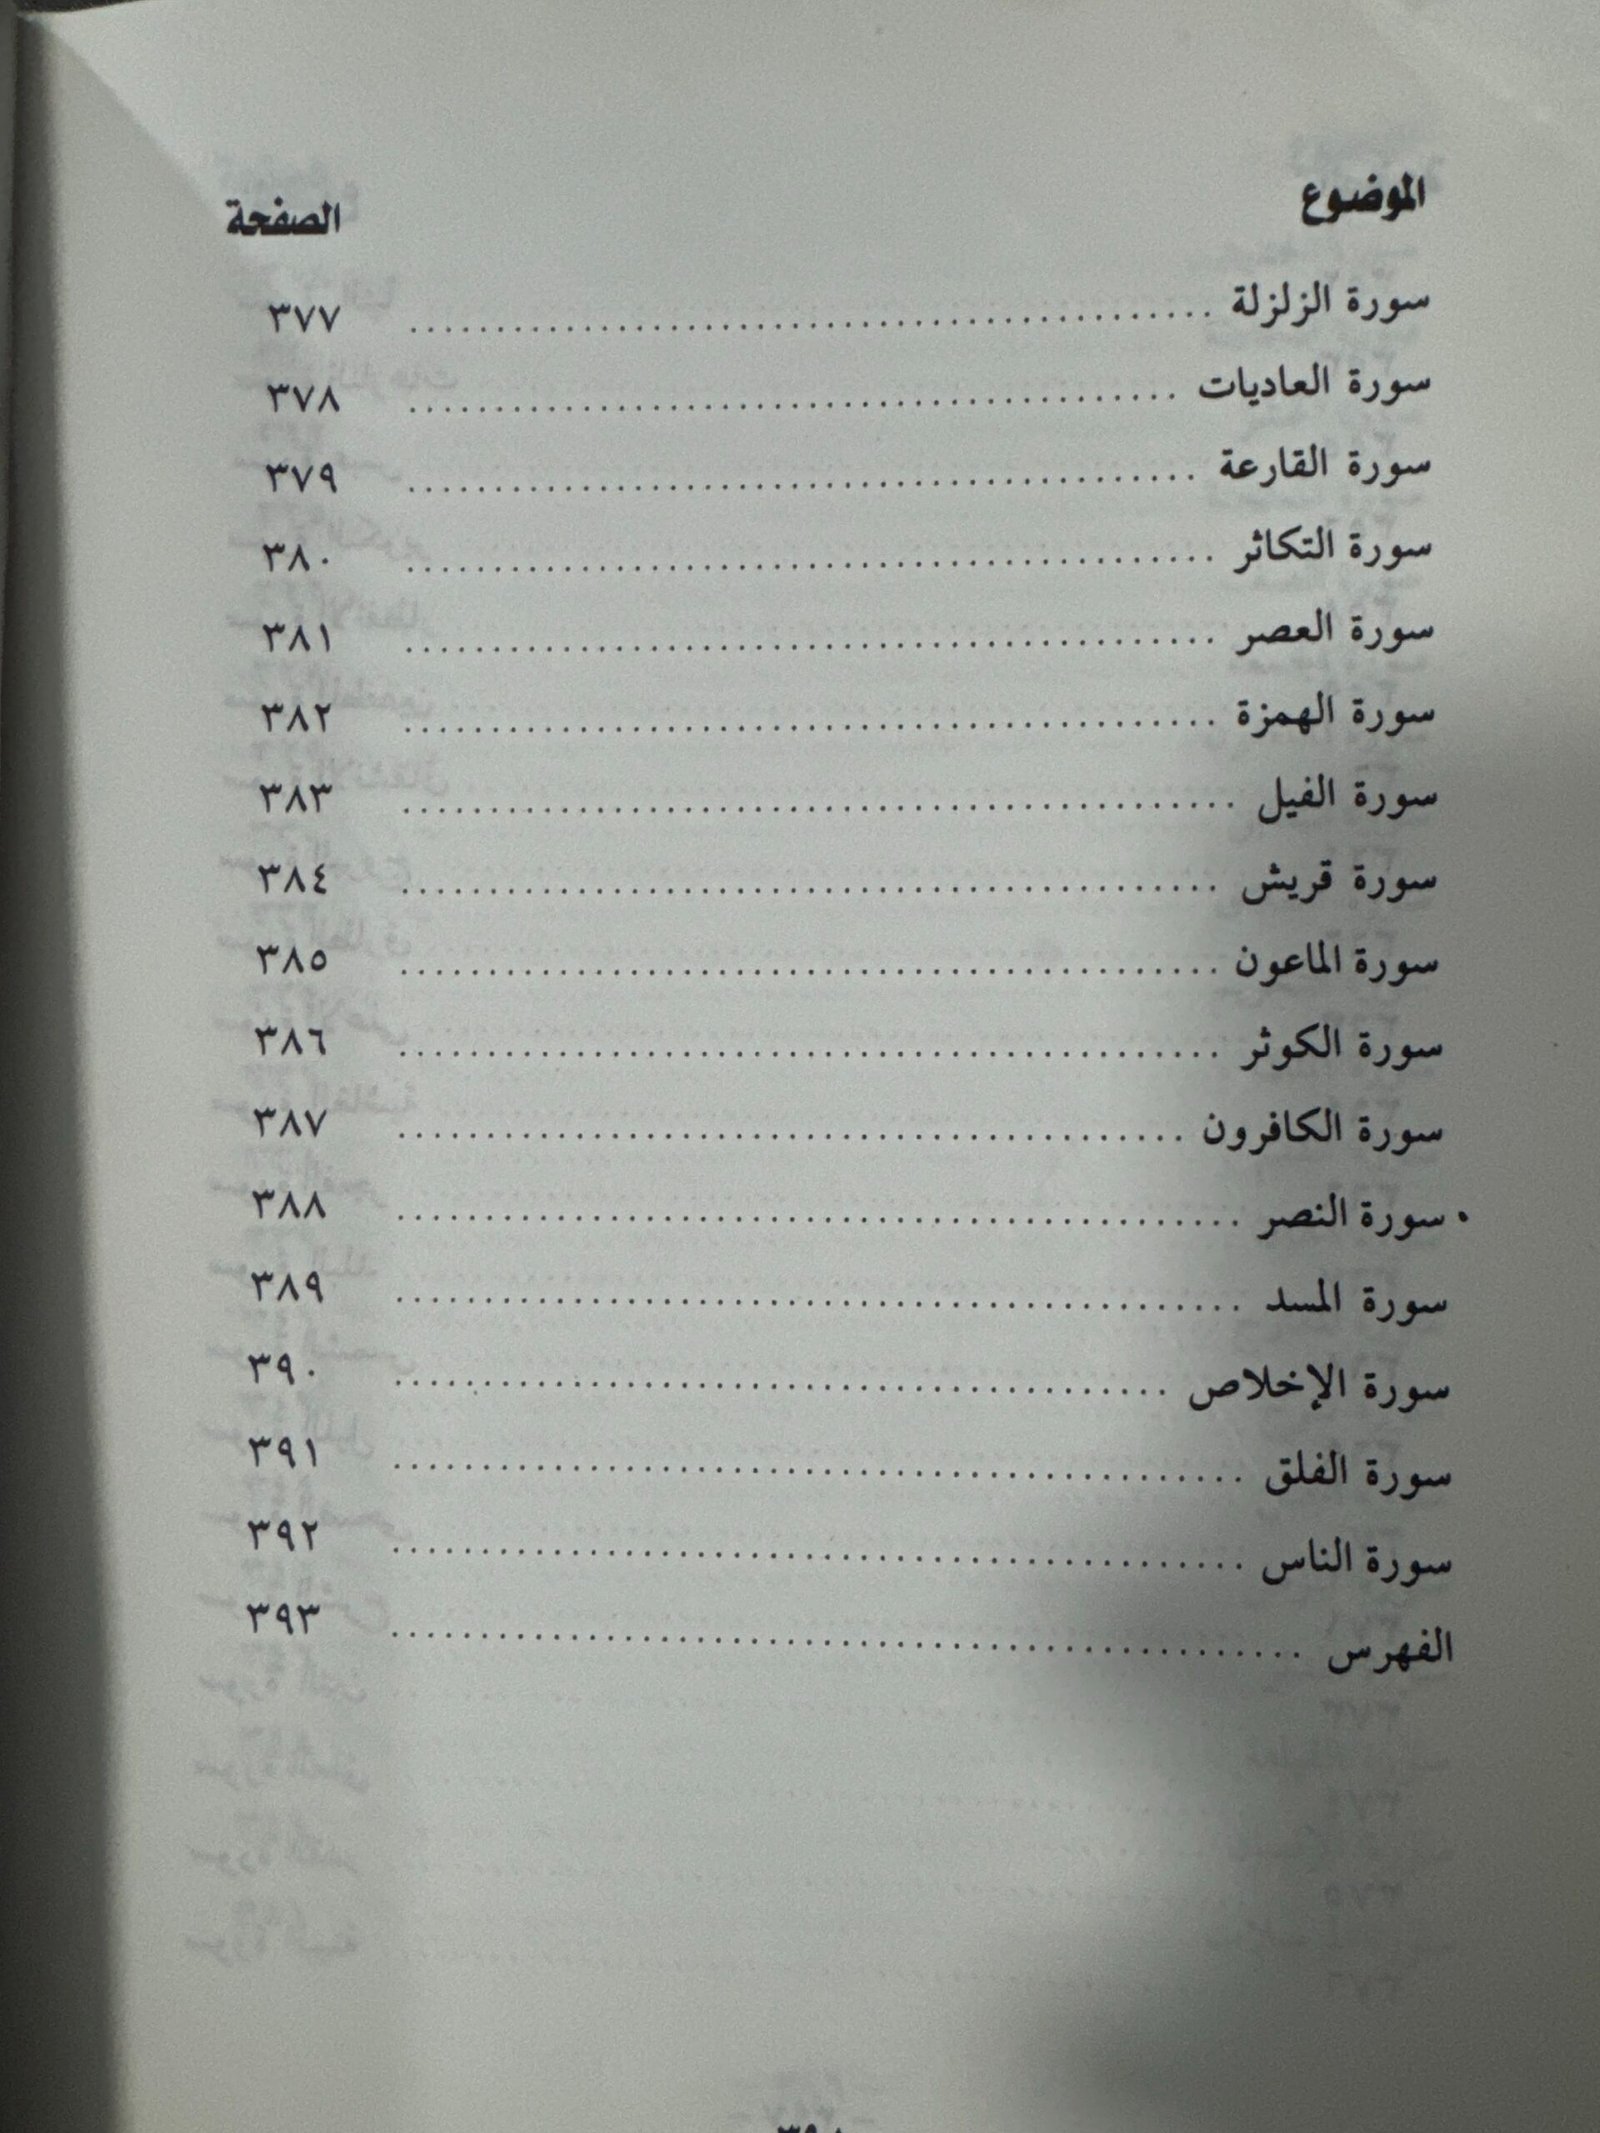 الموضوع الصفحة
سورة الزلزلة ٣٧٧
سورة العاديات ٣٧٨
سورة القارعة ٣٧٩
سورة التكاثر ٣٨٠
سورة العصر ٣٨١
سورة الهمزة ٣٨٢
سورة الفيل ٣٨٣
سورة قريش ٣٨٤
سورة الماعون ٣٨٥
سورة الكوثر ٣٨٦
سورة الكافرون ٣٨٧
سورة النصر ٣٨٨
سورة المسد ٣٨٩
سورة الإخلاص ٣٩٠
سورة الفلق ٣٩١
سورة الناس ٣٩٢
الفهرس ٣٩٣